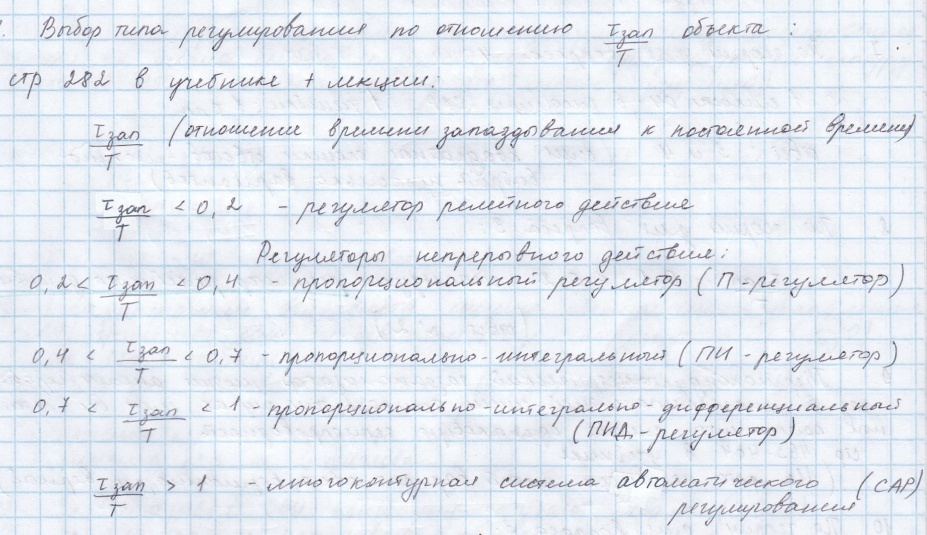 Выбор типа регулирования по отношению τзап/T объекта:
стр 282 в учебнике + лекции:
τзап/T (отношение времени запаздывания к постоянной времени)
τзап/T < 0,2 - регулятор релейного действия
Регуляторы непрерывного действия:
0,2 < τзап/T < 0,4 - пропорциональный регулятор (П-регулятор)
0,4 < τзап/T < 0,7 - пропорционально-интегральный (ПИ-регулятор)
0,7 < τзап/T < 1 - пропорционально-интегрально-дифференциальный
(ПИД-регулятор)
τзап/T > 1 - многоконтурная система автоматического (САР)
регулирования